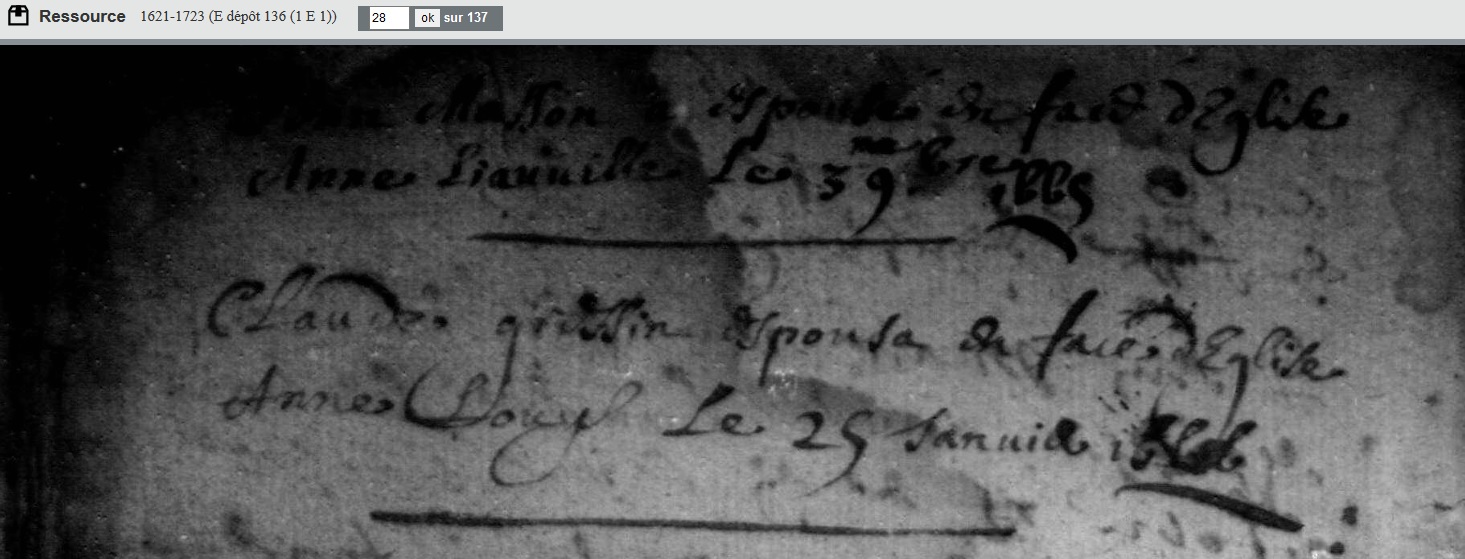 Ressource 1621-1723 (E dépôt 136 (1 E 1)) 28 ok sur 137
Masson a espousé en face d'Eglise
Anne Le 3 9bre 1665
Claude espousa en face d'Eglise
Anne Le 25 Janvier